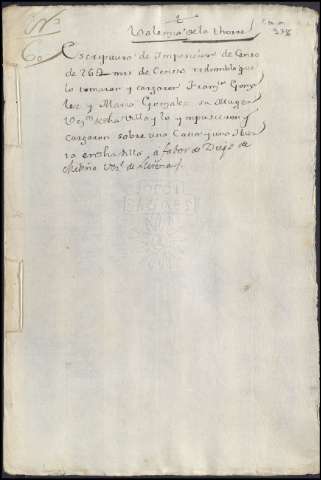 Valençia de la thorre
Nº
6º
Escriptura de Imposiçion de Censo
de 262 mrs de Censso redimible que
lo tomaron y cargaron Franco Gonza
lez y Maria Gonzalez su Muger
Vezos de dha Villa y lo ynpusieron y
cargaron sobre una Cassa y una
en dha Villa, a fabor de Diego de
Vzo de Llerena